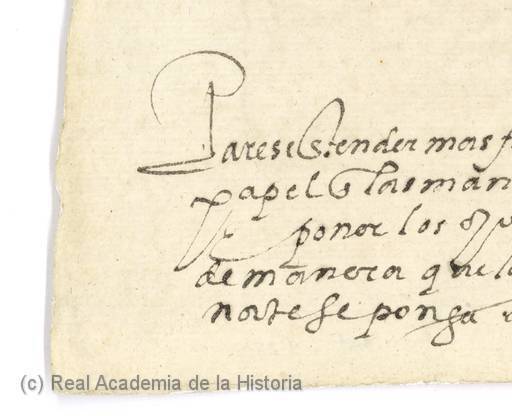 Para se estender mas f
papel y las man
poner los
de manera que la
norte se ponga a
(c) Real Academia de la Historia